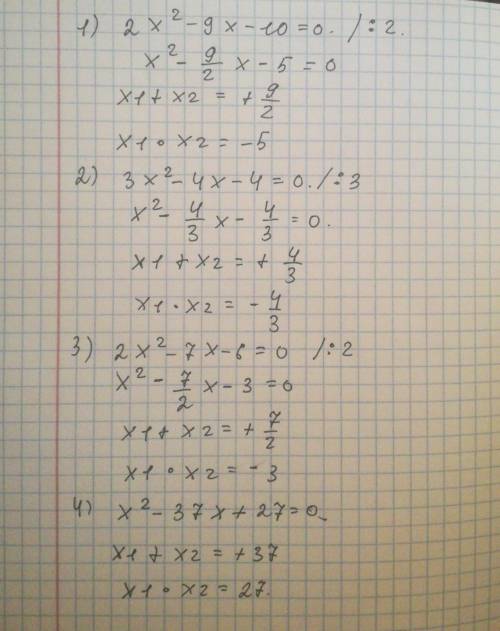 1) 2x² - 9x - 10 = 0. / : 2.
x² - 9/2 x - 5 = 0
x1 + x2 = + 9/2
x1 · x2 = -5
2) 3x² - 4x - 4 = 0. / : 3
x² - 4/3 x - 4/3 = 0.
x1 + x2 = + 4/3
x1 · x2 = - 4/3
3) 2x² - 7x - 6 = 0 / : 2
x² - 7/2 x - 3 = 0
x1 + x2 = + 7/2
x1 · x2 = - 3
4) x² - 37x + 27 = 0
x1 + x2 = + 37
x1 · x2 = 27.